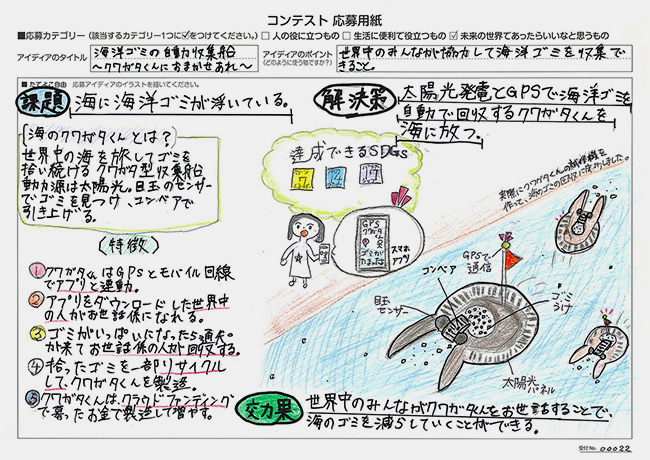 コンテスト 応募用紙
■応募カテゴリー(該当するカテゴリー1つに☑をつけてください。) □ 人の役に立つもの □ 生活に便利で役立つもの ☑ 未来の世界であったらいいなと思うもの
アイディアのタイトル
海洋ゴミの自動収集船
〜クワガタくんにおまかせあれ〜
アイディアのポイント
(どのように使う物ですか?)
世界中のみんなが協力して海洋ゴミを収集で
きること。
■ たてよこ自由 応募アイディアのイラストを描いてください。
課題
海に海洋ゴミが浮いている。
解決策
太陽光発電とGPSで海洋ゴミを
自動で回収するクワガタくんを
海に放つ。
海のクワガタくんとは?
世界中の海を旅してゴミを
拾い続けるクワガタ型収集船
動力源は太陽光。目玉のセンサー
でゴミを見つけ、コンベアで
引き上げる。
(特徴)
① クワガタくんはGPSとモバイル回線
でアプリと連動。
② アプリをダウンロードした世界中
の人がお世話係になれる。
③ ゴミがいっぱいになったら通知
が来てお世話係の人が回収する。
④ 拾ったゴミを一部リサイクル
してクワガタくんを製造。
⑤ クワガタくんは、クラウドファンディング
で募ったお金で製造して増やす。
達成できるSDGs
7
14
17
GPS
クワガタ
スマホ
アプリ
実際にクワガタくんの試作機を
GPSで
通信
コンベア
目玉
センサー
ゴミ
うけ
太陽光
パネル
効果
世界中のみんながクワガタくんをお世話することで、
海のゴミを減らしていくことができる。
受付No. 00022